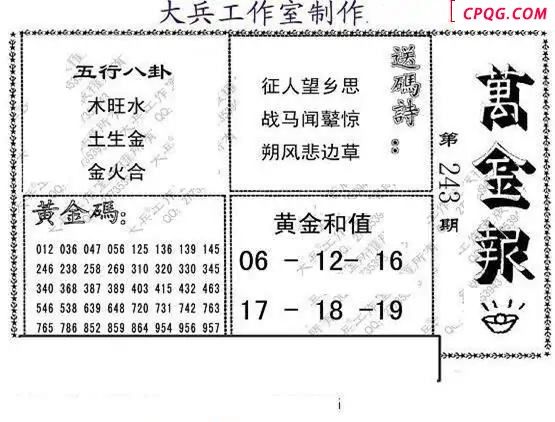 大兵工作室制作
CPQG.COM
萬金報
第243期
五行八卦
木旺水
土生金
金火合
送碼詩：
征人望乡思
战马闻鼙惊
朔风悲边草
黃金碼：
012 036 047 056 125 136 139 145
246 238 258 269 310 320 330 345
340 368 387 389 403 415 432 463
546 538 639 648 720 731 742 763
765 786 852 859 864 954 956 957
黄金和值
06 - 12- 16
17 - 18 -19